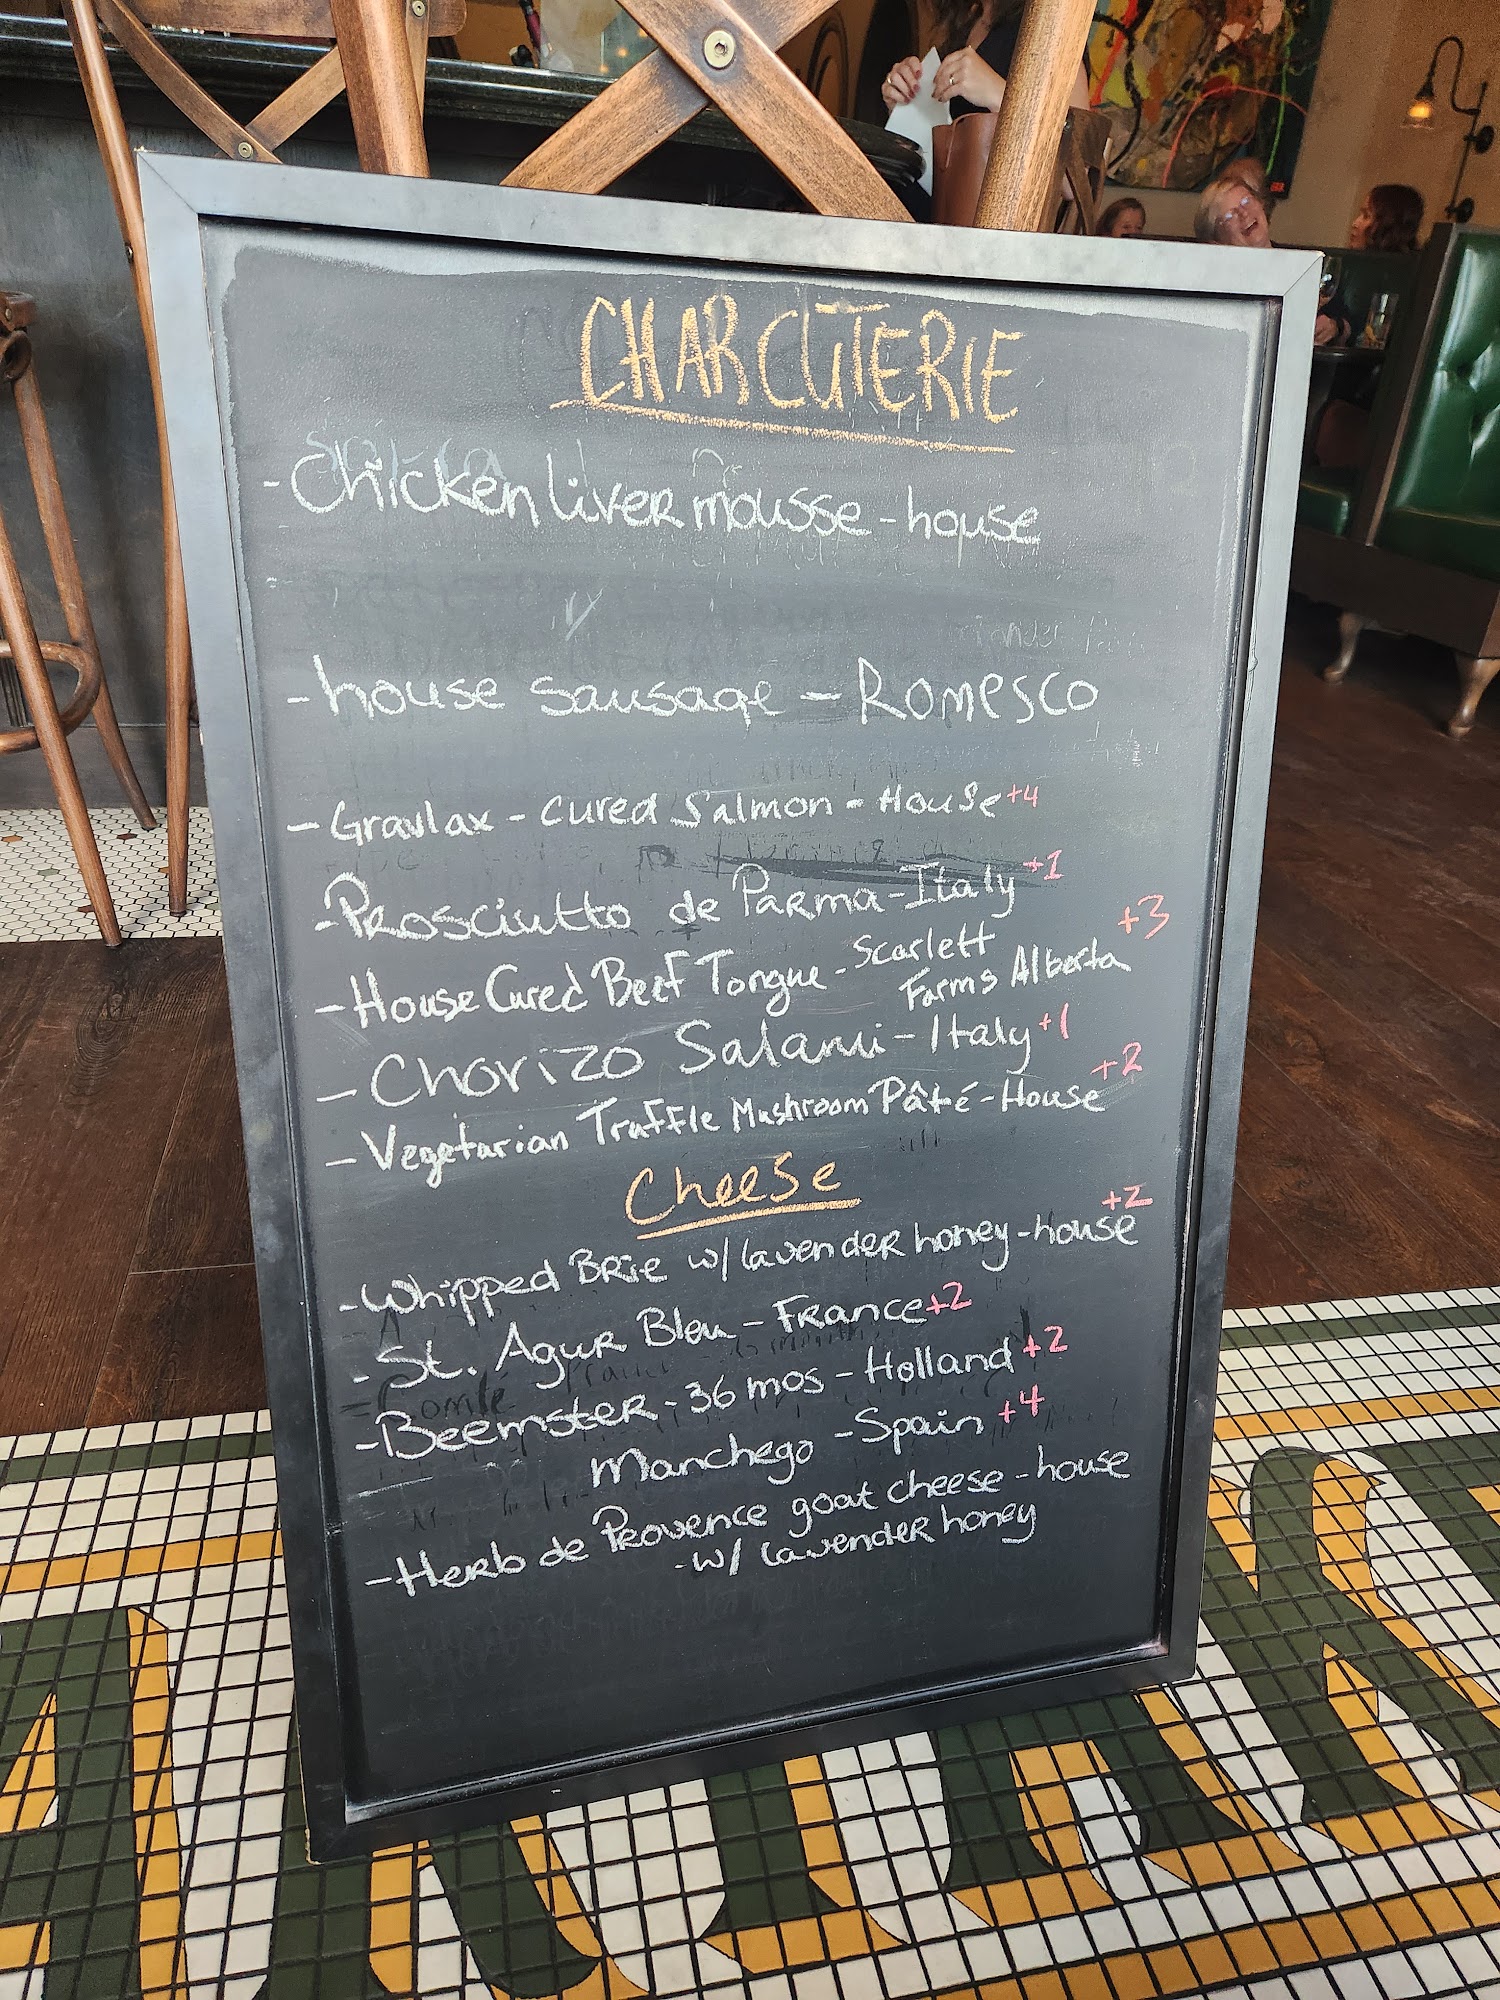 CHARCUTERIE
- Chicken liver mousse - house
- house sausage - Romesco
- Gravlax - cured Salmon - House +4
- Prosciutto de Parma - Italy +1
- House Cured Beef Tongue - Scarlett
Farms Alberta +3
- Chorizo Salami - Italy +1
- Vegetarian Truffle Mushroom Pâté - House +2
Cheese
- Whipped Brie w/ lavender honey - house +2
- St. Agur Bleu - France +2
- Beemster - 36 mos - Holland +2
Manchego - Spain +4
- Herb de Provence goat cheese - house
- w/ lavender honey